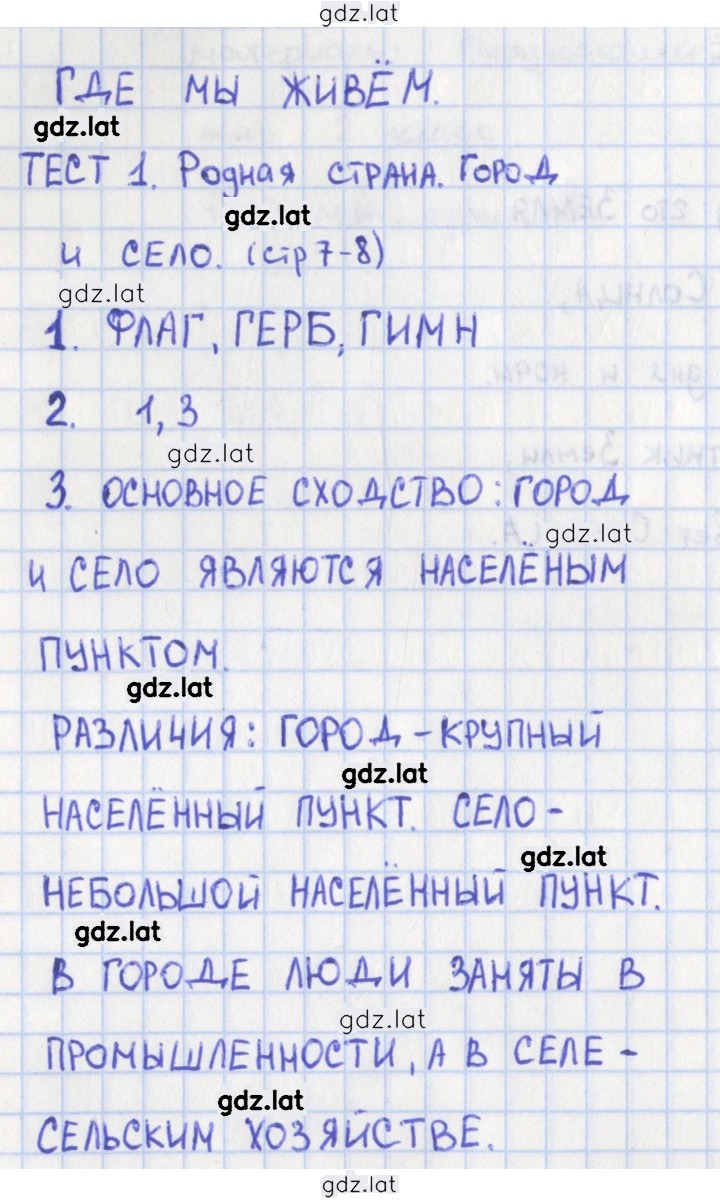 gdz.lat
ГДЕ МЫ ЖИВЁМ.
gdz.lat
ТЕСТ 1. Родная СТРАНА. ГОРОД
gdz.lat
и СЕЛО. (стр 7-8)
gdz.lat
1. ФЛАГ, ГЕРБ, ГИМН
2. 1, 3
gdz.lat
3. ОСНОВНОЕ СХОДСТВО: ГОРОД
gdz.lat
и СЕЛО ЯВЛЯЮТСЯ НАСЕЛЁНЫМ
ПУНКТОМ.
gdz.lat
РАЗЛИЧИЯ: ГОРОД - КРУПНЫЙ
gdz.lat
НАСЕЛЁННЫЙ ПУНКТ. СЕЛО -
gdz.lat
НЕБОЛЬШОЙ НАСЕЛЁННЫЙ ПУНКТ.
gdz.lat
В ГОРОДЕ ЛЮДИ ЗАНЯТЫ В
gdz.lat
ПРОМЫШЛЕННОСТИ, А В СЕЛЕ -
gdz.lat
СЕЛЬСКИМ ХОЗЯЙСТВЕ.
gdz.lat